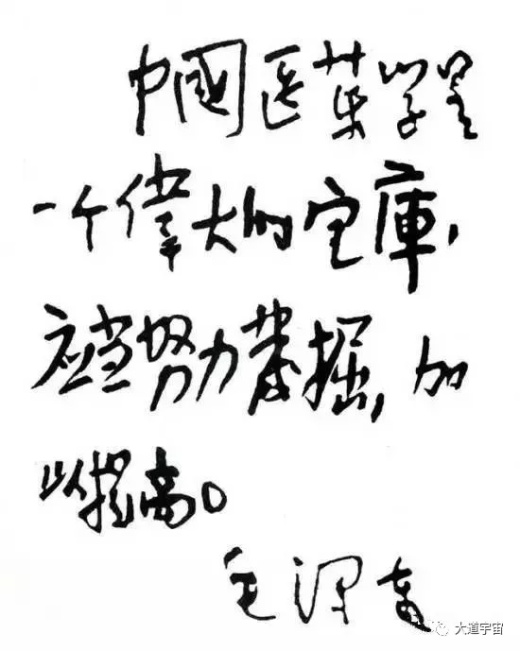 中國医药学是
一个偉大的宝庫，
应当努力发掘，加
以提高。
毛泽东
大道宇宙